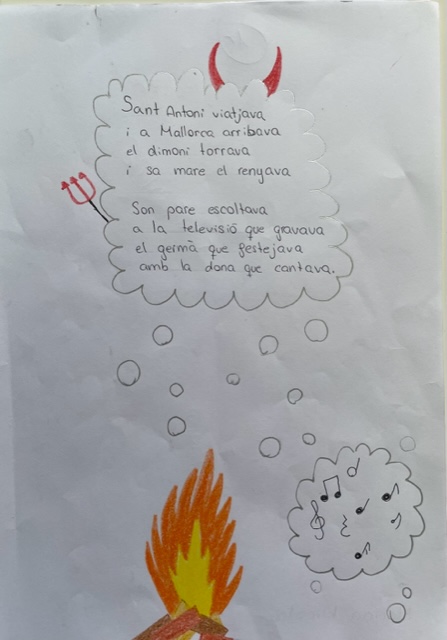 Sant Antoni viatjava
i a Mallorca arribava
el dimoni torrava
i sa mare el renyava
Son pare escoltava
a la televisió que gravava
el germà que festejava
amb la dona que cantava.